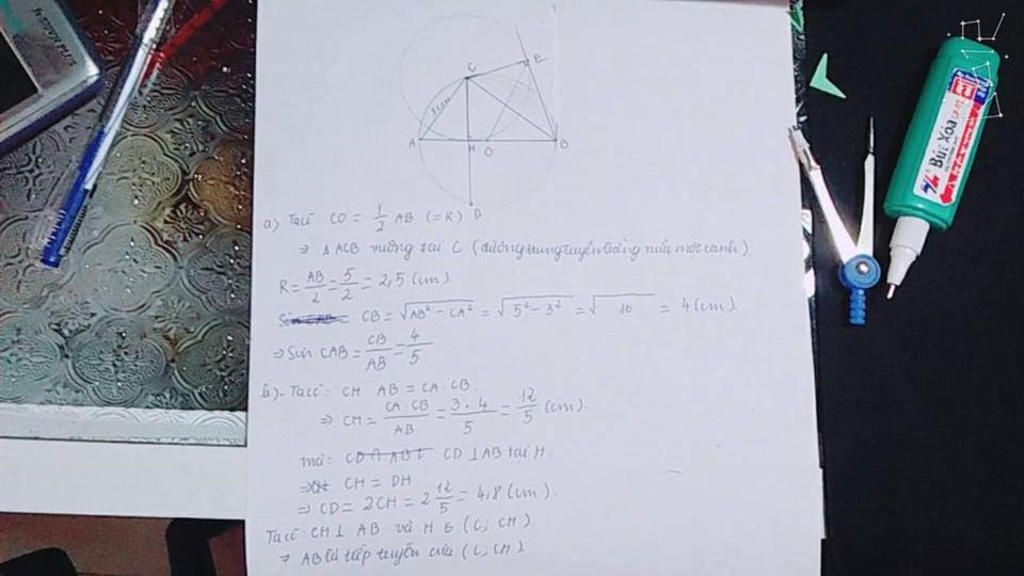 C
E
3cm
A
H
O
B
D
a) Ta có: CO = 1/2 AB (= R)
⇒ Δ ACB vuông tại C (đường trung tuyến bằng nửa một cạnh)
R = AB/2 = 5/2 = 2,5 (cm)
CB = √(AB² - CA²) = √(5² - 3²) = √10 = 4 (cm)
⇒ Sin CAB = CB/AB = 4/5
b) - Ta có: CH AB = CA . CB
⇒ CH = CA CB/AB = 3.4/5 = 12/5 (cm).
mà: CD ⊥ AB tại H.
CH = DH
⇒ CD = 2CH = 2 12/5 = 4,8 (cm).
Ta có: CH ⊥ AB và H ∈ (C; CH)
⇒ AB là tiếp tuyến của (C; CH)
Bút Xóa